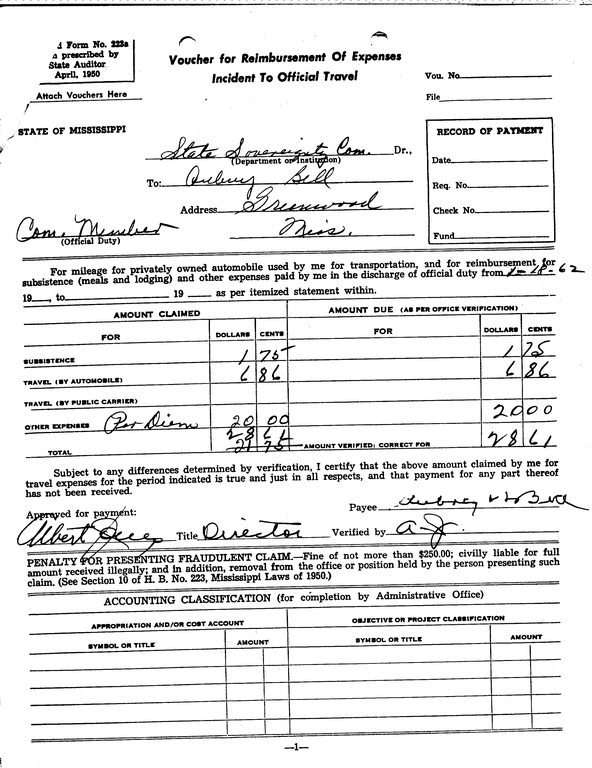 Form No. 223a
prescribed by
State Auditor
April, 1950
Attach Vouchers Here
Voucher for Reimbursement Of Expenses
Incident To Official Travel
Vou. No.
File
STATE OF MISSISSIPPI
RECORD OF PAYMENT
Date
Req. No.
Check No.
Fund
State Sovereignty Com. Dr.,
(Department or Institution)
To: Aubrey Bell
Address Greenwood
Miss.
Com. Member
(Official Duty)
For mileage for privately owned automobile used by me for transportation, and for reimbursement for
subsistence (meals and lodging) and other expenses paid by me in the discharge of official duty from 1-18-62
19___, to 19 ___ as per itemized statement within.
AMOUNT CLAIMED AMOUNT DUE (AS PER OFFICE VERIFICATION)
FOR DOLLARS CENTS FOR DOLLARS CENTS
SUBSISTENCE 1 75 1 75
TRAVEL (BY AUTOMOBILE) 6 86 6 86
TRAVEL (BY PUBLIC CARRIER)
OTHER EXPENSES Per Diem 20 00 20 00
28 61
TOTAL 21 75 AMOUNT VERIFIED: CORRECT FOR 28 61
Subject to any differences determined by verification, I certify that the above amount claimed by me for
travel expenses for the period indicated is true and just in all respects, and that payment for any part thereof
has not been received.
Approved for payment: Payee Aubrey H Bell
Albert Jones Title Director Verified by A.J.
PENALTY FOR PRESENTING FRAUDULENT CLAIM.—Fine of not more than $250.00; civilly liable for full
amount received illegally; and in addition, removal from the office or position held by the person presenting such
claim. (See Section 10 of H. B. No. 223, Mississippi Laws of 1950.)
ACCOUNTING CLASSIFICATION (for completion by Administrative Office)
APPROPRIATION AND/OR COST ACCOUNT OBJECTIVE OR PROJECT CLASSIFICATION
SYMBOL OR TITLE AMOUNT SYMBOL OR TITLE AMOUNT
—1—